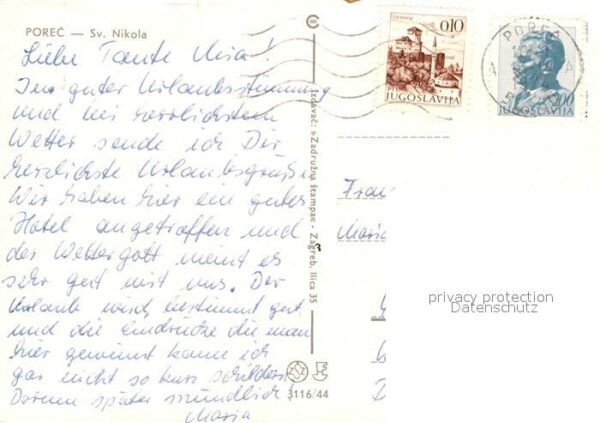 POREČ — Sv. Nikola
Liebe Tante Mia!
In guter Urlaubsstimmung
und bei herrlichstem
Wetter sende ich Dir
herzlichste Urlaubsgrüße.
Wir haben hier ein gutes
Hotel angetroffen und
der Wettergott meint es
sehr gut mit uns. Der
Urlaub wird bestimmt gut
und die Eindrücke die man
hier gewinnt kann ich
gar nicht so kurz schildern.
Darum später mündlich
Maria
Izdavač: »Zadružna štampa« - Zagreb, Ilica 35
3
3116/44
0,10
JUGOSLAVIJA
POREČ
JUGOSLAVIJA
Frau
Maria
privacy protection
Datenschutz